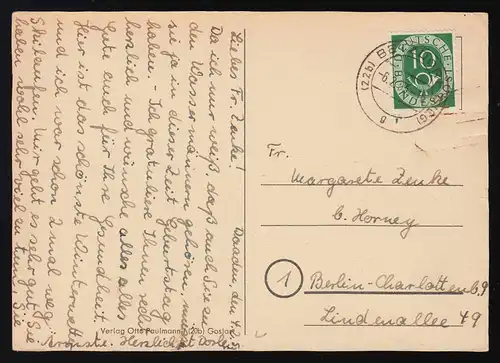 Daaden, den 4.2.
Liebes Frl. Zenke!
Da ich nur weiß, daß auch Sie zu
den Wassermännern gehören, müssen
sie ja in dieser Zeit Geburtstag
haben. - Ich gratuliere Ihnen sehr
herzlich und wünsche alles alles
Gute auch für Ihre Gesundheit.
Hier ist das schönste Winterwetter
und ich war schon 2 mal weg
Skilaufen. Mir geht es sehr gut. Sie
haben wohl sehr viel zu tun, Sie
Ärmste. Herzlichst
Verlag Otto Paulmann (20b) Goslar
(22b)
DEUTSCHE
BUNDESPOST
10
Fr.
Margarete Zenke
b. Horney
1
Berlin-Charlottenb. 9
Lindenallee 49